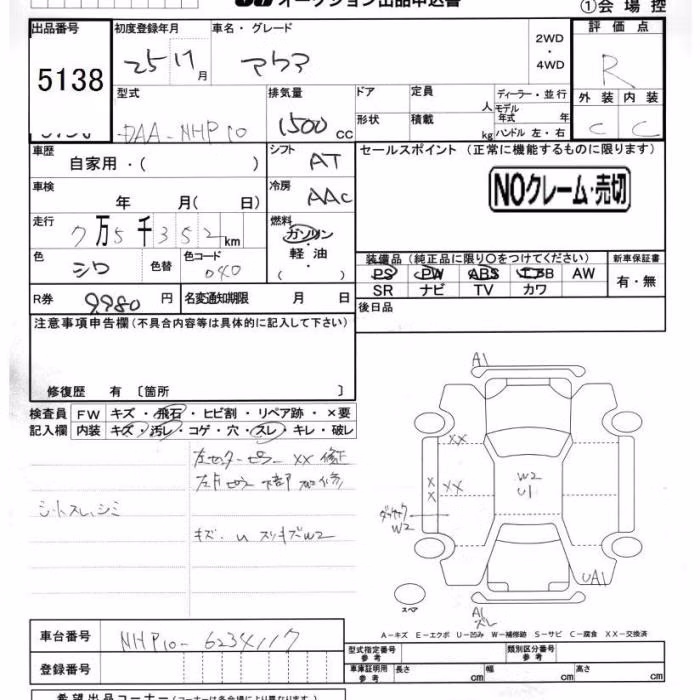 オークション出品申込書
①会場控
出品番号 初度登録年月 車名・グレード 2WD ・ 4WD 評価点
5138 25 11月 アクア R
型式 排気量 ドア 定員 人 ディーラー・並行 モデル年式 年 外装 内装
DAA-NHP10 1500cc 形状 積載 kg ハンドル 左・右 C C
車歴 自家用・( ) シフト AT セールスポイント (正常に機能するものに限ります)
車検 年 月( 日) 冷房 AAC NOクレーム・売切
走行 7万5千352km 燃料 ガソリン 軽油 ・( )
色 シロ 色替 色コード 040 装備品(純正品に限り○をつけてください) 新車保証書
PS PW ABS エアB AW 有・無
SR ナビ TV カワ
R券 9,980円 名変通知期限 月 日 後日品
注意事項申告欄(不具合内容等は具体的に記入して下さい)
修復歴 有 〔箇所 〕
検査員 FW キズ・飛石・ヒビ割・リペア跡・×要
記入欄 内装 キズ・汚レ・コゲ・穴・スレ・キレ・破レ
左センターピラー XX 修正
シートスレ,シミ
キズ・U スリキズW2
A1
XX
XX XX
W2
U1
W2
UA1
スペア
A1
スレ
A-キズ E-エクボ U-凹み W-補修跡 S-サビ C-腐食 XX-交換済
車台番号 NHP10-6234117
登録番号
型式指定番号 参考 類別区分番号 参考
車庫証明用 参考 長さ cm 幅 cm 高さ cm
希望出品コーナー(コーナーは各会場により異なります)